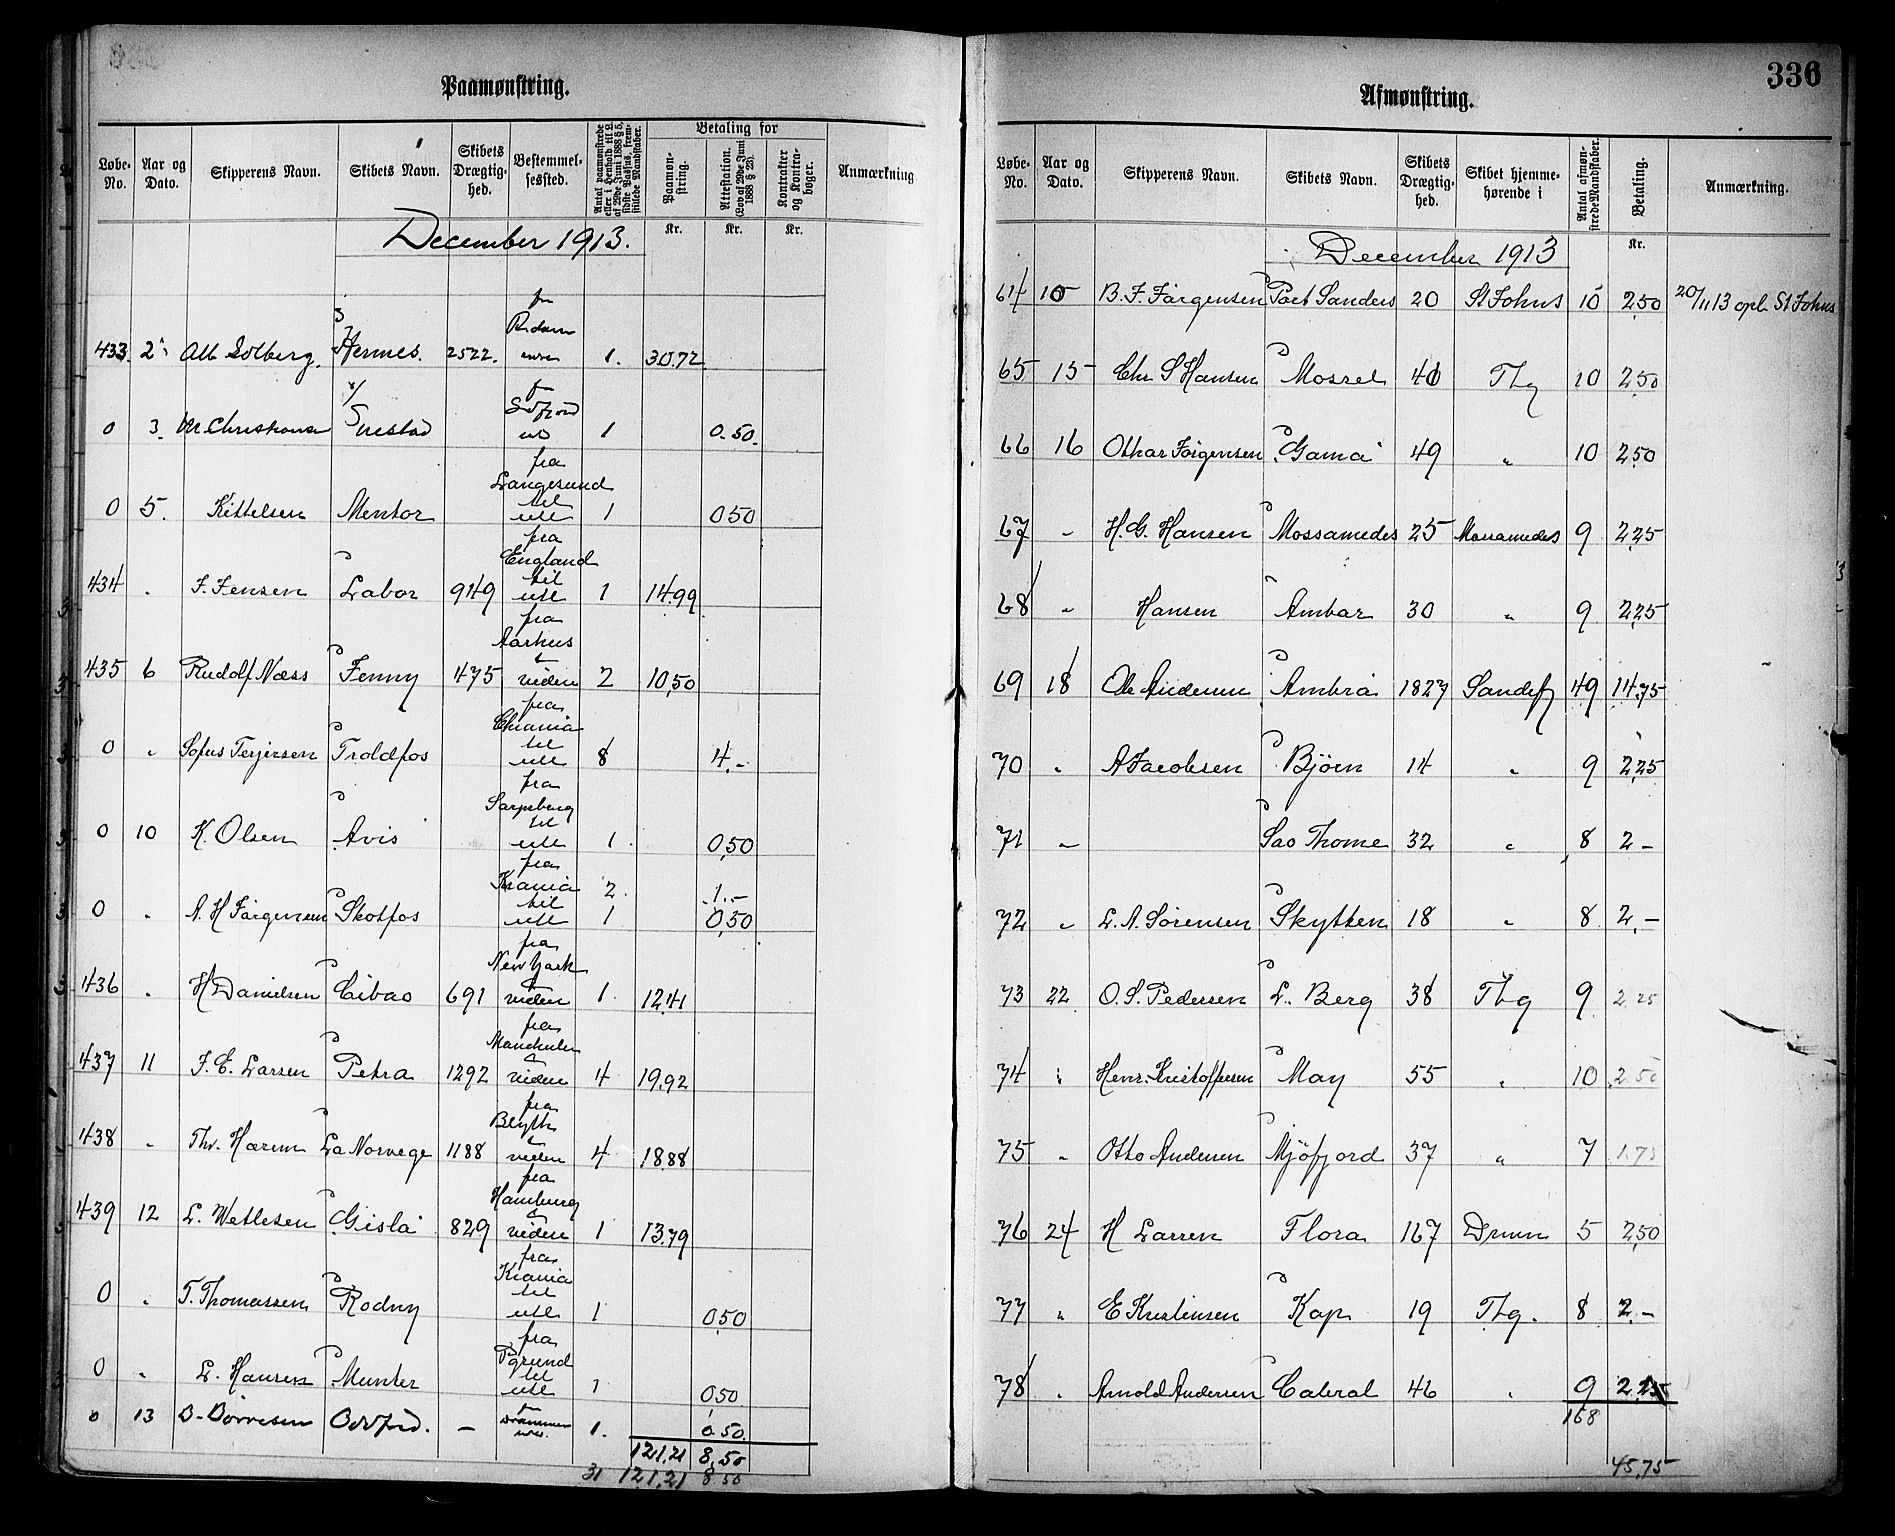 336
Paamønstring.
Løbe-No. Aar og Dato. Skipperens Navn. Skibets Navn. Skibets Drægtighed. Bestemmelsessted. Antal paamønstrede eller i Henhold til L. af 29de Juni 1888 § 5, sidste Passus, fremstillede Mandskaber. Betaling for Paamønstring. Attestation. (Lov af 29de Juni 1888 § 23). Kontrakter og Kontrabøger. Anmærkning
Kr. Kr. Kr.
December 1913.
433. 2 Alb Solberg. Hermes. 2522. fra 1. 30.72
0 3. M. Christiansen 1 0.50.
0 5. Kittelsen Mentor fra Langesund til utl 1 0 50
434 " J. Jensen Labor 949 fra England til utl 1 14.99
435 6 Rudolf Næss Jenny 475 fra Aarhus t videre 2 10,50
0 " Sofus Terjesen Troldfos fra Chrania til utl 8 4.-
0 10 K. Olsen Avis fra Sarpsborg til utl 1 0,50
0 " A. H Jørgensen Skotfos fra Krania til utl 2 1.-
1 0,50
436 " H Danielsen Cibao 691 fra New York t videre 1 12,41
437 11 J. E. Larsen Petra 1292 fra Manchester t videre 4 19,92
438 " Thv. Harem La Norvege 1188 fra Blyth t videre 4 18,88
439 12 L. Wetlesen Gisla 829 fra Hamburg t videre 1 13,79
0 " T. Thomassen Rodny fra Krania til utl 1 0,50
0 " L. Hansen Munter fra Pgrund til utl 1 0,50
0 13 - fra Drammen 1. 0.50.
121,21 8,50
31 121,21 8.50
Afmønstring.
Løbe-No. Aar og Dato. Skipperens Navn. Skibets Navn. Skibets Drægtighed. Skibet hjemmehørende i Antal afmønstrede Mandskaber. Betaling. Anmærkning.
Kr.
December 1913
64 10 B. F. Jørgensen Poet Sanders 20 St Johns 10 2,50 20/11 13 opl. St Johns
65 15 Chr S Hansen Mossel 40 Tbg 10 2,50
66 16 Othar Jørgensen Gama 49 " 10 2,50
67 " H. G. Hansen Mossamedes 25 Mossamedes 9 2,25
68 " Hansen Ambar 30 " 9 2,25
69 18 Ole Andersen Ambra 1827 Sandefj 49 14,75
70 " A Jacobsen Bjørn 14 " 9 2,25
71 " Sao Thome 32 " 8 2 -
72 " L. A. Sørensen Skytten 18 " 8 2,-
73 22 O. S. Pedersen L. Berg 38 Tbg 9 2.25
74 " Henr. Kristoffersen May 55 " 10 2.50
75 " Otto Andersen Mjöfjord 37 " 7 1.75
76 24 H Larsen Flora 167 Drmn 5 2,50
77 " E Kristensen Kap 19 Tbg. 8 2.-
78 " Arnold Andersen Cabral 46 " 9 2,25
168
45,75